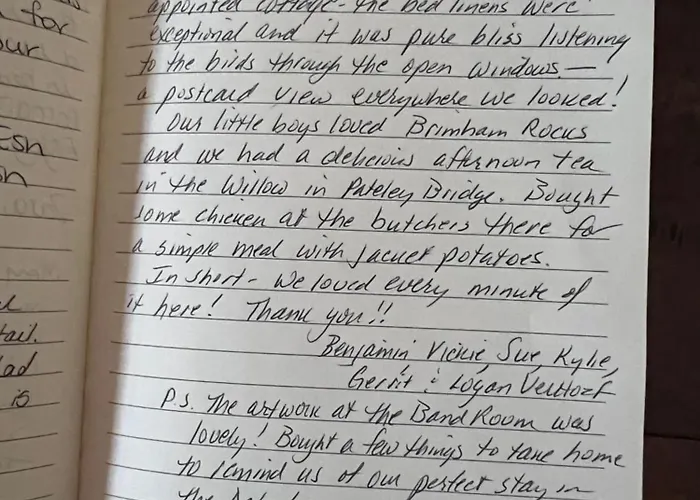 for
our
Esh
on
tail.
ad
is
appointed cottage - the bed linens were
exceptional and it was pure bliss listening
to the birds through the open windows. —
a postcard view everywhere we looked!
Our little boys loved Brimham Rocks
and we had a delicious afternoon tea
in the Willow in Pateley Bridge. Bought
some chicken at the butchers there for
a simple meal with jacket potatoes.
In short - we loved every minute of
it here! Thank you!!
Benjamin, Vickie, Sue, Kylie,
Gerrit & Logan
P.S. The artwork at the Band Room was
lovely! Bought a few things to take home
to remind us of our perfect stay in
the